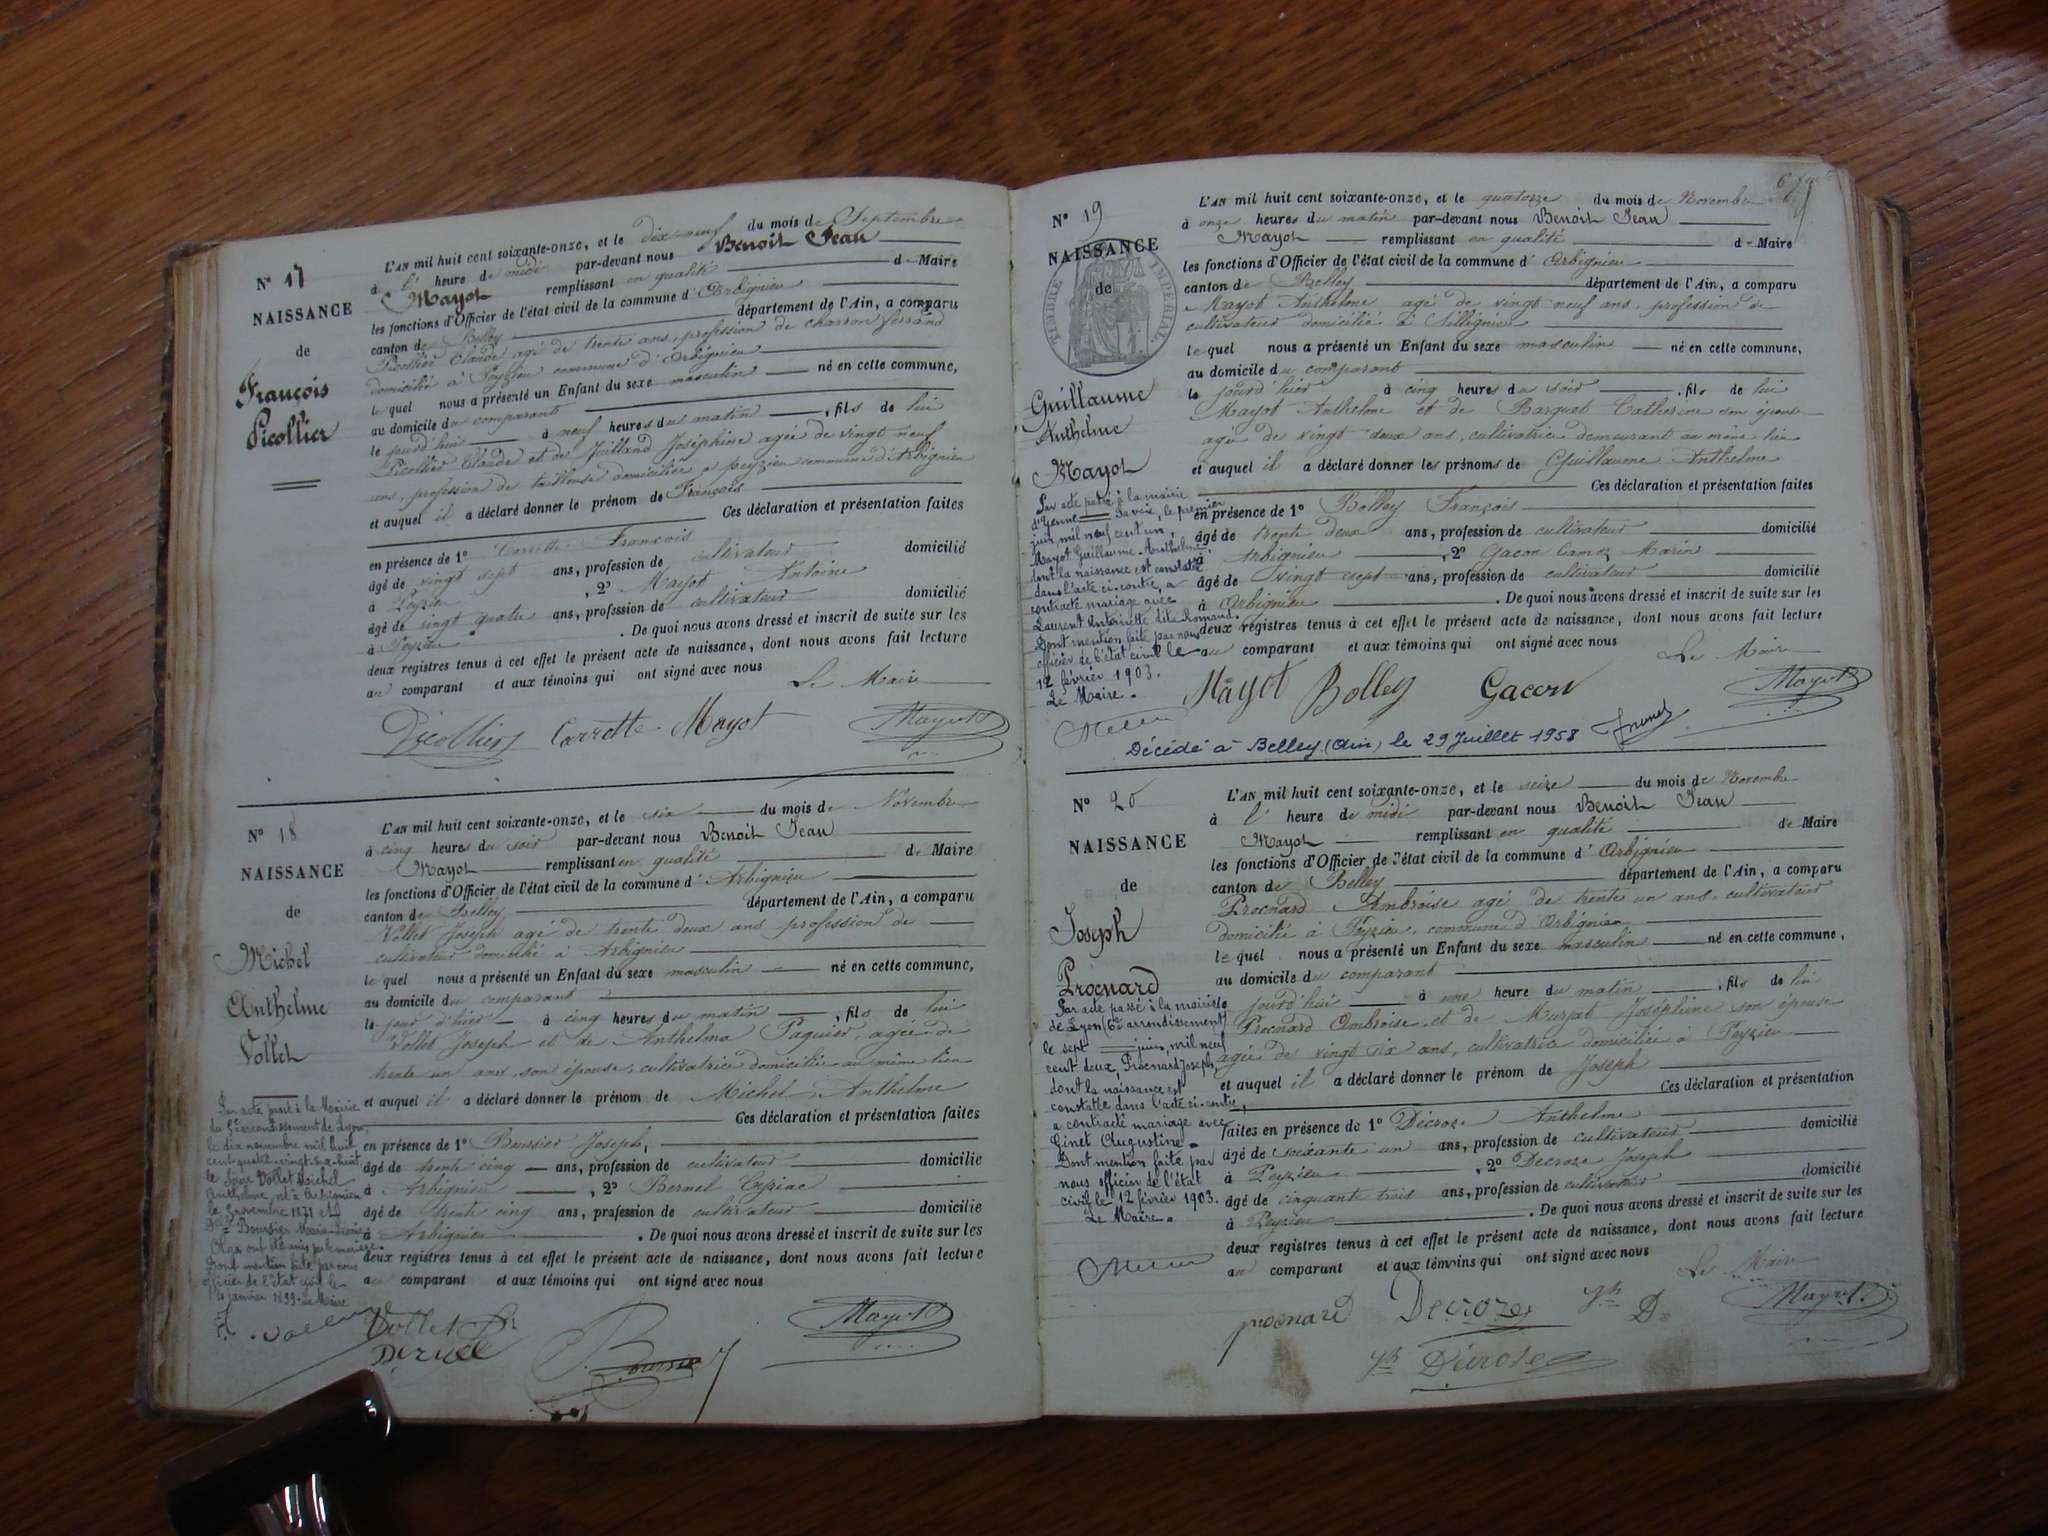 N° 17
NAISSANCE
de
François
Picollier
L'AN mil huit cent soixante-onze, et le dix neuf du mois de Septembre
à l' heure de midi par-devant nous Benoit Jean
Mayot remplissant en qualité de Maire
les fonctions d'Officier de l'état civil de la commune d'Arbignieu
canton de Belley département de l'Ain, a comparu
Picollier Claude agé de trente ans, profession de charron ferrand
domicilié à Peyzieu commune d'Arbignieu
le quel nous a présenté un Enfant du sexe masculin né en cette commune,
au domicile du comparant
le jourd'hui à neuf heures du matin, fils de lui
Picollier Claude et de Juilland Joséphine agée de vingt neuf
ans, profession de tailleuse domiciliée à peyzieu commune d'Arbignieu
et auquel il a déclaré donner le prénom de François
Ces déclaration et présentation faites
en présence de 1° Carrette François
âgé de vingt sept ans, profession de cultivateur domicilié
à Peyzieu, 2° Mayot Antoine
âgé de vingt quatre ans, profession de cultivateur domicilié
à Peyzieu. De quoi nous avons dressé et inscrit de suite sur les
deux registres tenus à cet effet le présent acte de naissance, dont nous avons fait lecture
au comparant et aux témoins qui ont signé avec nous
Le Maire
Picollier Carrette Mayot Mayot
N° 18
NAISSANCE
de
Michel
Anthelme
Vollet
Par acte passé à la Mairie
du 5e arrondissement de Lyon,
le dix novembre mil huit
cent quatre-vingt-dix-huit,
le Sieur Vollet Michel
Anthelme, né à Arbignieu
le 5 novembre 1871 et la
Boussier Marie
Olga ont été unis par le mariage.
Dont mention faite par nous
officier de l'état civil le
janvier 1899. Le Maire
L'AN mil huit cent soixante-onze, et le six du mois de Novembre
à cinq heures du soir par-devant nous Benoit Jean
Mayot remplissant en qualité de Maire
les fonctions d'Officier de l'état civil de la commune d'Arbignieu
canton de Belley département de l'Ain, a comparu
Vollet Joseph agé de trente deux ans profession de
cultivateur domicilié à Arbignieu
le quel nous a présenté un Enfant du sexe masculin né en cette commune,
au domicile du comparant
le jour d'hier à cinq heures du matin, fils de lui
Vollet Joseph et de Anthelma Paquier, agée de
trente un ans, son épouse, cultivatrice domiciliée au même lieu
et auquel il a déclaré donner le prénom de Michel Anthelme
Ces déclaration et présentation faites
en présence de 1° Boussier Joseph,
âgé de trente cinq ans, profession de cultivateur domicilié
à Arbignieu, 2° Bernel Cyriac
âgé de trente cinq ans, profession de cultivateur domicilié
à Arbignieu. De quoi nous avons dressé et inscrit de suite sur les
deux registres tenus à cet effet le présent acte de naissance, dont nous avons fait lecture
au comparant et aux témoins qui ont signé avec nous
Vollet Mayot
Boussier
N° 19
NAISSANCE
de
TIMBRE IMPERIAL
Guillaume
Anthelme
Mayot
Par acte passé à la mairie
d'Yenne Savoie, le premier
juin mil neuf cent un,
Mayot Guillaume Anthelme,
dont la naissance est constatée
dans l'acte ci-contre, a
contracté mariage avec
Laurent Antoinette dite Romand.
Dont mention faite par nous
officier de l'état civil le
12 février 1903.
Le Maire.
L'AN mil huit cent soixante-onze, et le quatorze du mois de Novembre
à onze heures du matin par-devant nous Benoit Jean
Mayot remplissant en qualité de Maire
les fonctions d'Officier de l'état civil de la commune d'Arbignieu
canton de Belley département de l'Ain, a comparu
Mayot Anthelme agé de vingt neuf ans, profession de
cultivateur domicilié à Sillignieu
le quel nous a présenté un Enfant du sexe masculin né en cette commune,
au domicile du comparant
le jourd'hier à cinq heures du soir, fils de lui
Mayot Anthelme et de Barquet Catherine son épouse
agée de vingt deux ans, cultivatrice demeurant au même lieu
et auquel il a déclaré donner les prénoms de Guillaume Anthelme
Ces déclaration et présentation faites
en présence de 1° Bolley François
âgé de trente deux ans, profession de cultivateur domicilié
à Arbignieu, 2° Gacon Camoz Marin
âgé de vingt sept ans, profession de cultivateur domicilié
à Arbignieu. De quoi nous avons dressé et inscrit de suite sur les
deux registres tenus à cet effet le présent acte de naissance, dont nous avons fait lecture
au comparant et aux témoins qui ont signé avec nous
Le Maire
Mayot Bolley Gacon Mayot
Décédé à Belley (Ain) le 29 Juillet 1958
N° 20
NAISSANCE
de
Joseph
Procnard
Par acte passé à la mairie
de Lyon (6e arrondissement)
le sept juin, mil neuf
cent deux, Procnard Joseph,
dont la naissance est
constatée dans l'acte ci-contre,
a contracté mariage avec
Ginet Augustine.
Dont mention faite par
nous officier de l'état
civil le 12 février 1903.
Le Maire.
L'AN mil huit cent soixante-onze, et le seize du mois de Novembre
à l' heure de midi par-devant nous Benoit Jean
Mayot remplissant en qualité de Maire
les fonctions d'Officier de l'état civil de la commune d'Arbignieu
canton de Belley département de l'Ain, a comparu
Procnard Ambroise agé de trente un ans, cultivateur
domicilié à Peyzieu, commune d'Arbignieu
le quel nous a présenté un Enfant du sexe masculin né en cette commune,
au domicile du comparant
jourd'hui à une heure du matin, fils de lui
Procnard Ambroise et de Murjat Joséphine son épouse
agée de vingt six ans, cultivatrice domiciliée à Peyzieu
et auquel il a déclaré donner le prénom de Joseph
Ces déclaration et présentation
faites en présence de 1° Décroze Anthelme
âgé de soixante un ans, profession de cultivateur domicilié
à Peyzieu, 2° Decroze Joseph
âgé de cinquante trois ans, profession de cultivateur domicilié
à Peyzieu. De quoi nous avons dressé et inscrit de suite sur les
deux registres tenus à cet effet le présent acte de naissance, dont nous avons fait lecture
au comparant et aux témoins qui ont signé avec nous
Le Maire
procnard Decroze Mayot